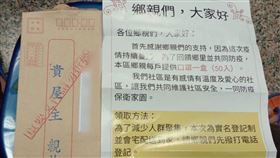 鄉親們，大家好
各位鄉親們，大家好：
首先感謝鄉親們的支持，因為這次疫
情持續
為了回饋鄉里並共同防疫，
本區鄉親每戶提供口罩一盒（50入）。
我們社區是有感情有溫度及愛心的社
區，讓我們共同維護社區安全，一同防疫
保衛家園。
領取方法：
為了減少人群聚集，本次為實名登記制
並會宅配
鄉親們先撥打電話
登記。
貴屋主 親